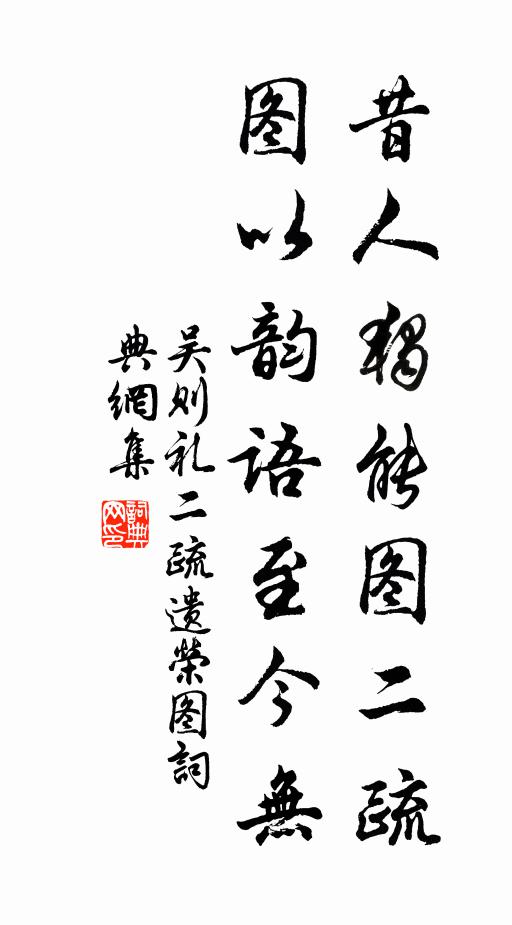 昔人独能图二疏
图以韵语至今無
吴则礼二疏遗榮图詞
典網集
詞典网印